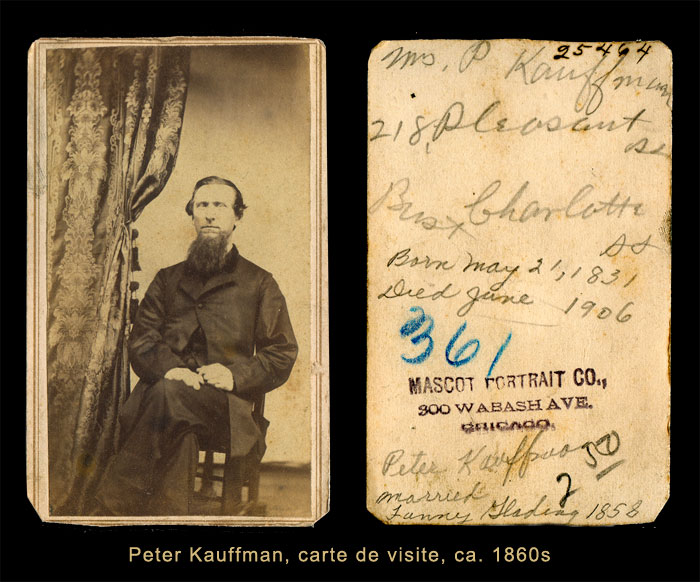 25464
Mrs. P Kauffman
218, Pleasant
Charlotte
Born May 21, 1831
Died June 1906
361
MASCOT PORTRAIT CO.,
300 WABASH AVE.
CHICAGO.
Peter Kauffman
50
2
married
Fanny Glading 1858
Peter Kauffman, carte de visite, ca. 1860s